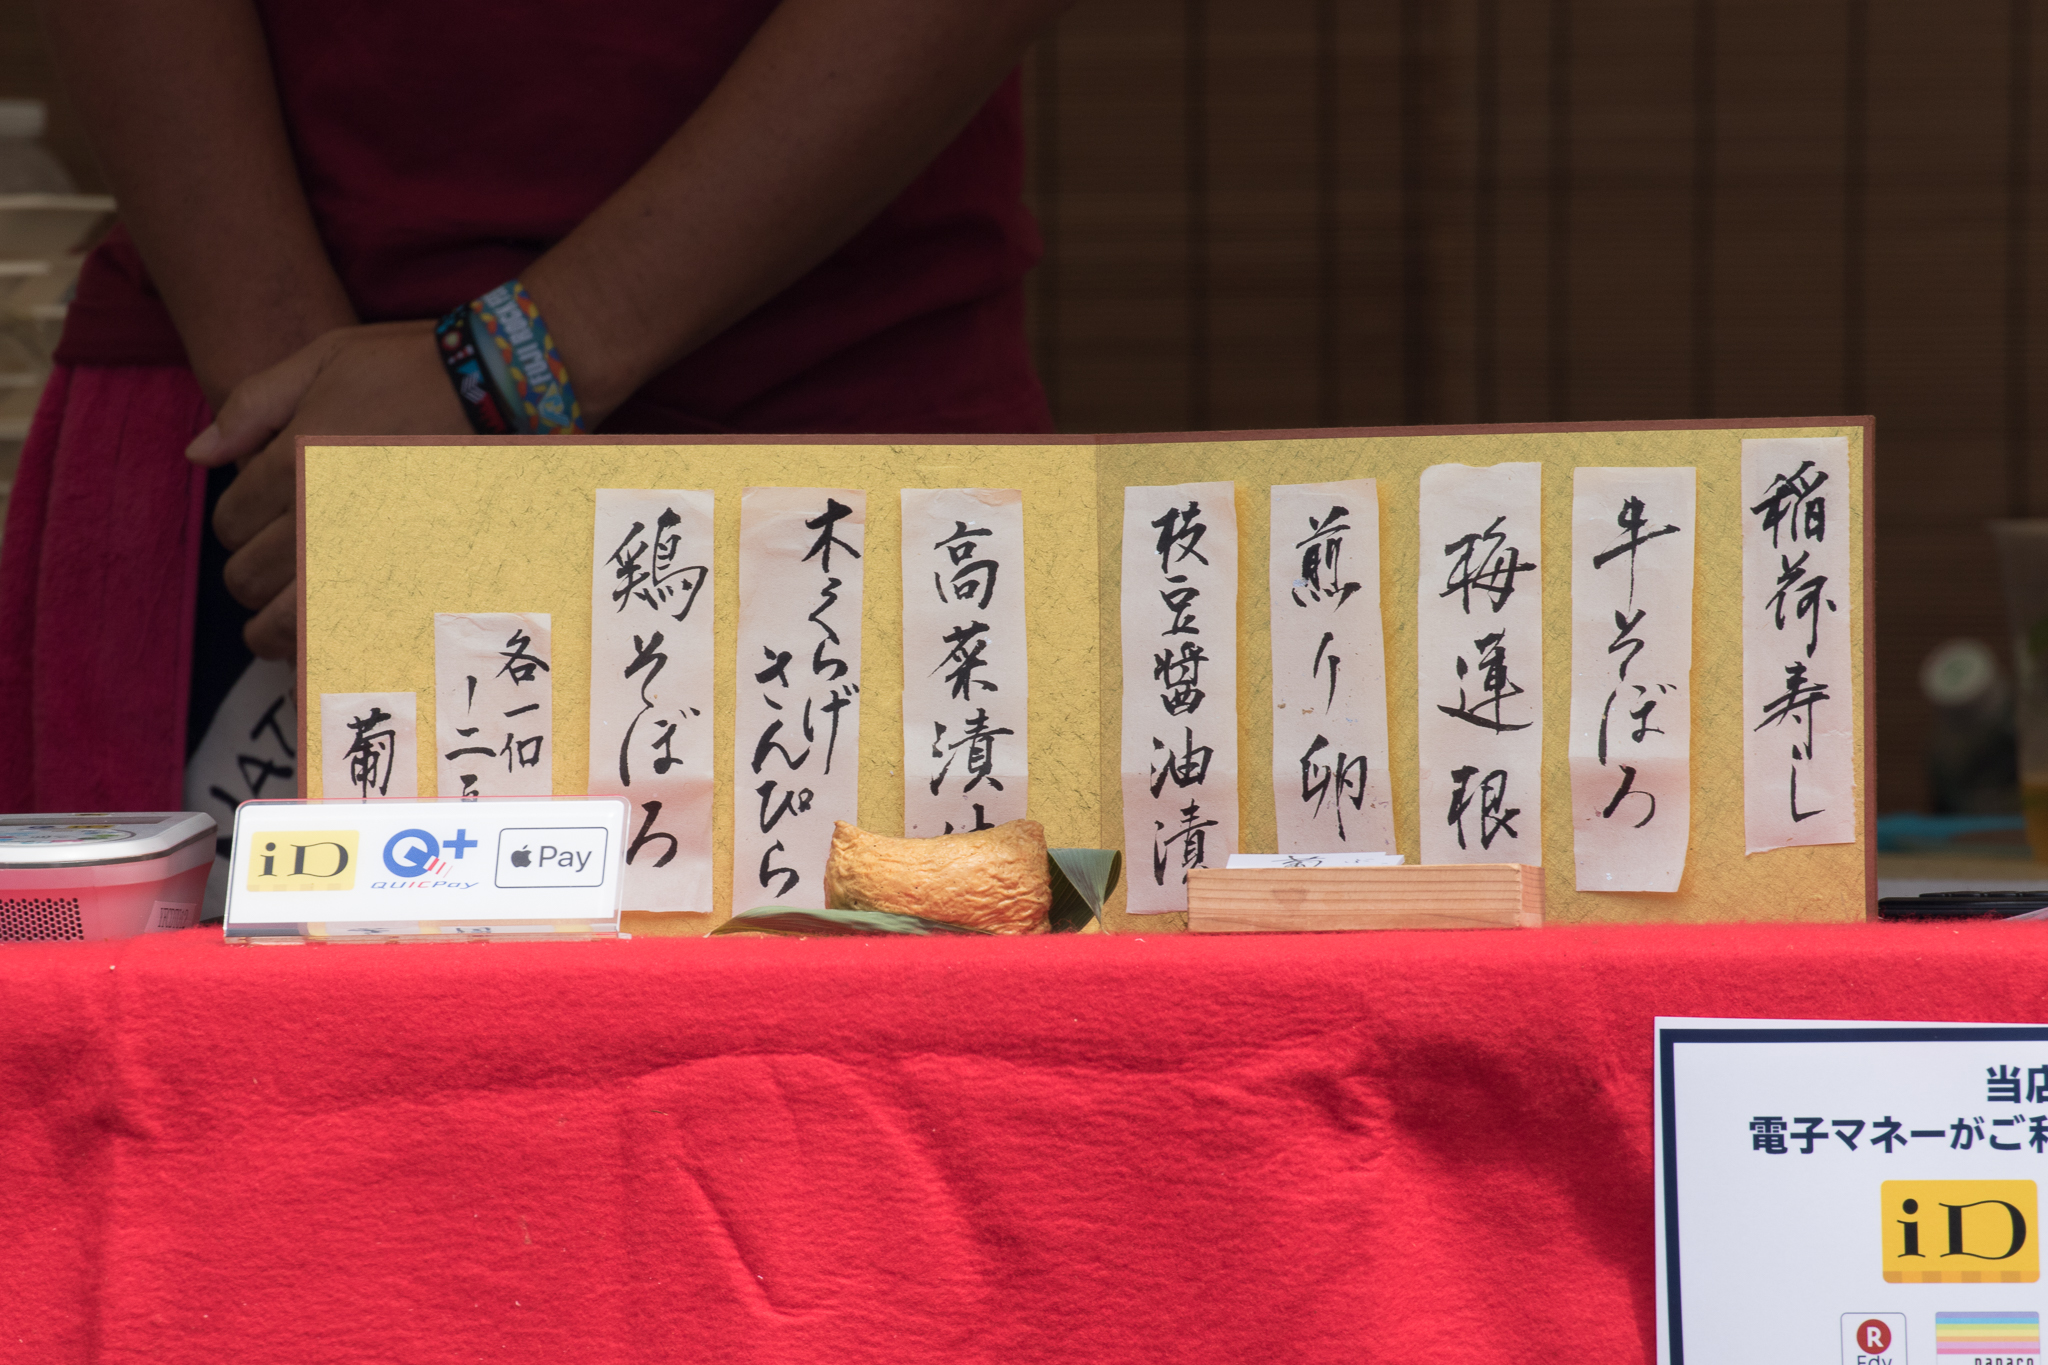 稲荷寿し
牛そぼろ
梅蓮根
煎り卵
枝豆醤油漬
高菜漬
木くらげ
きんぴら
鶏そぼろ
各一
二
葡
iD
QUICPay
Pay
FUJI ROCK
当店
電子マネーがご利
iD
R
Edy
nanaco